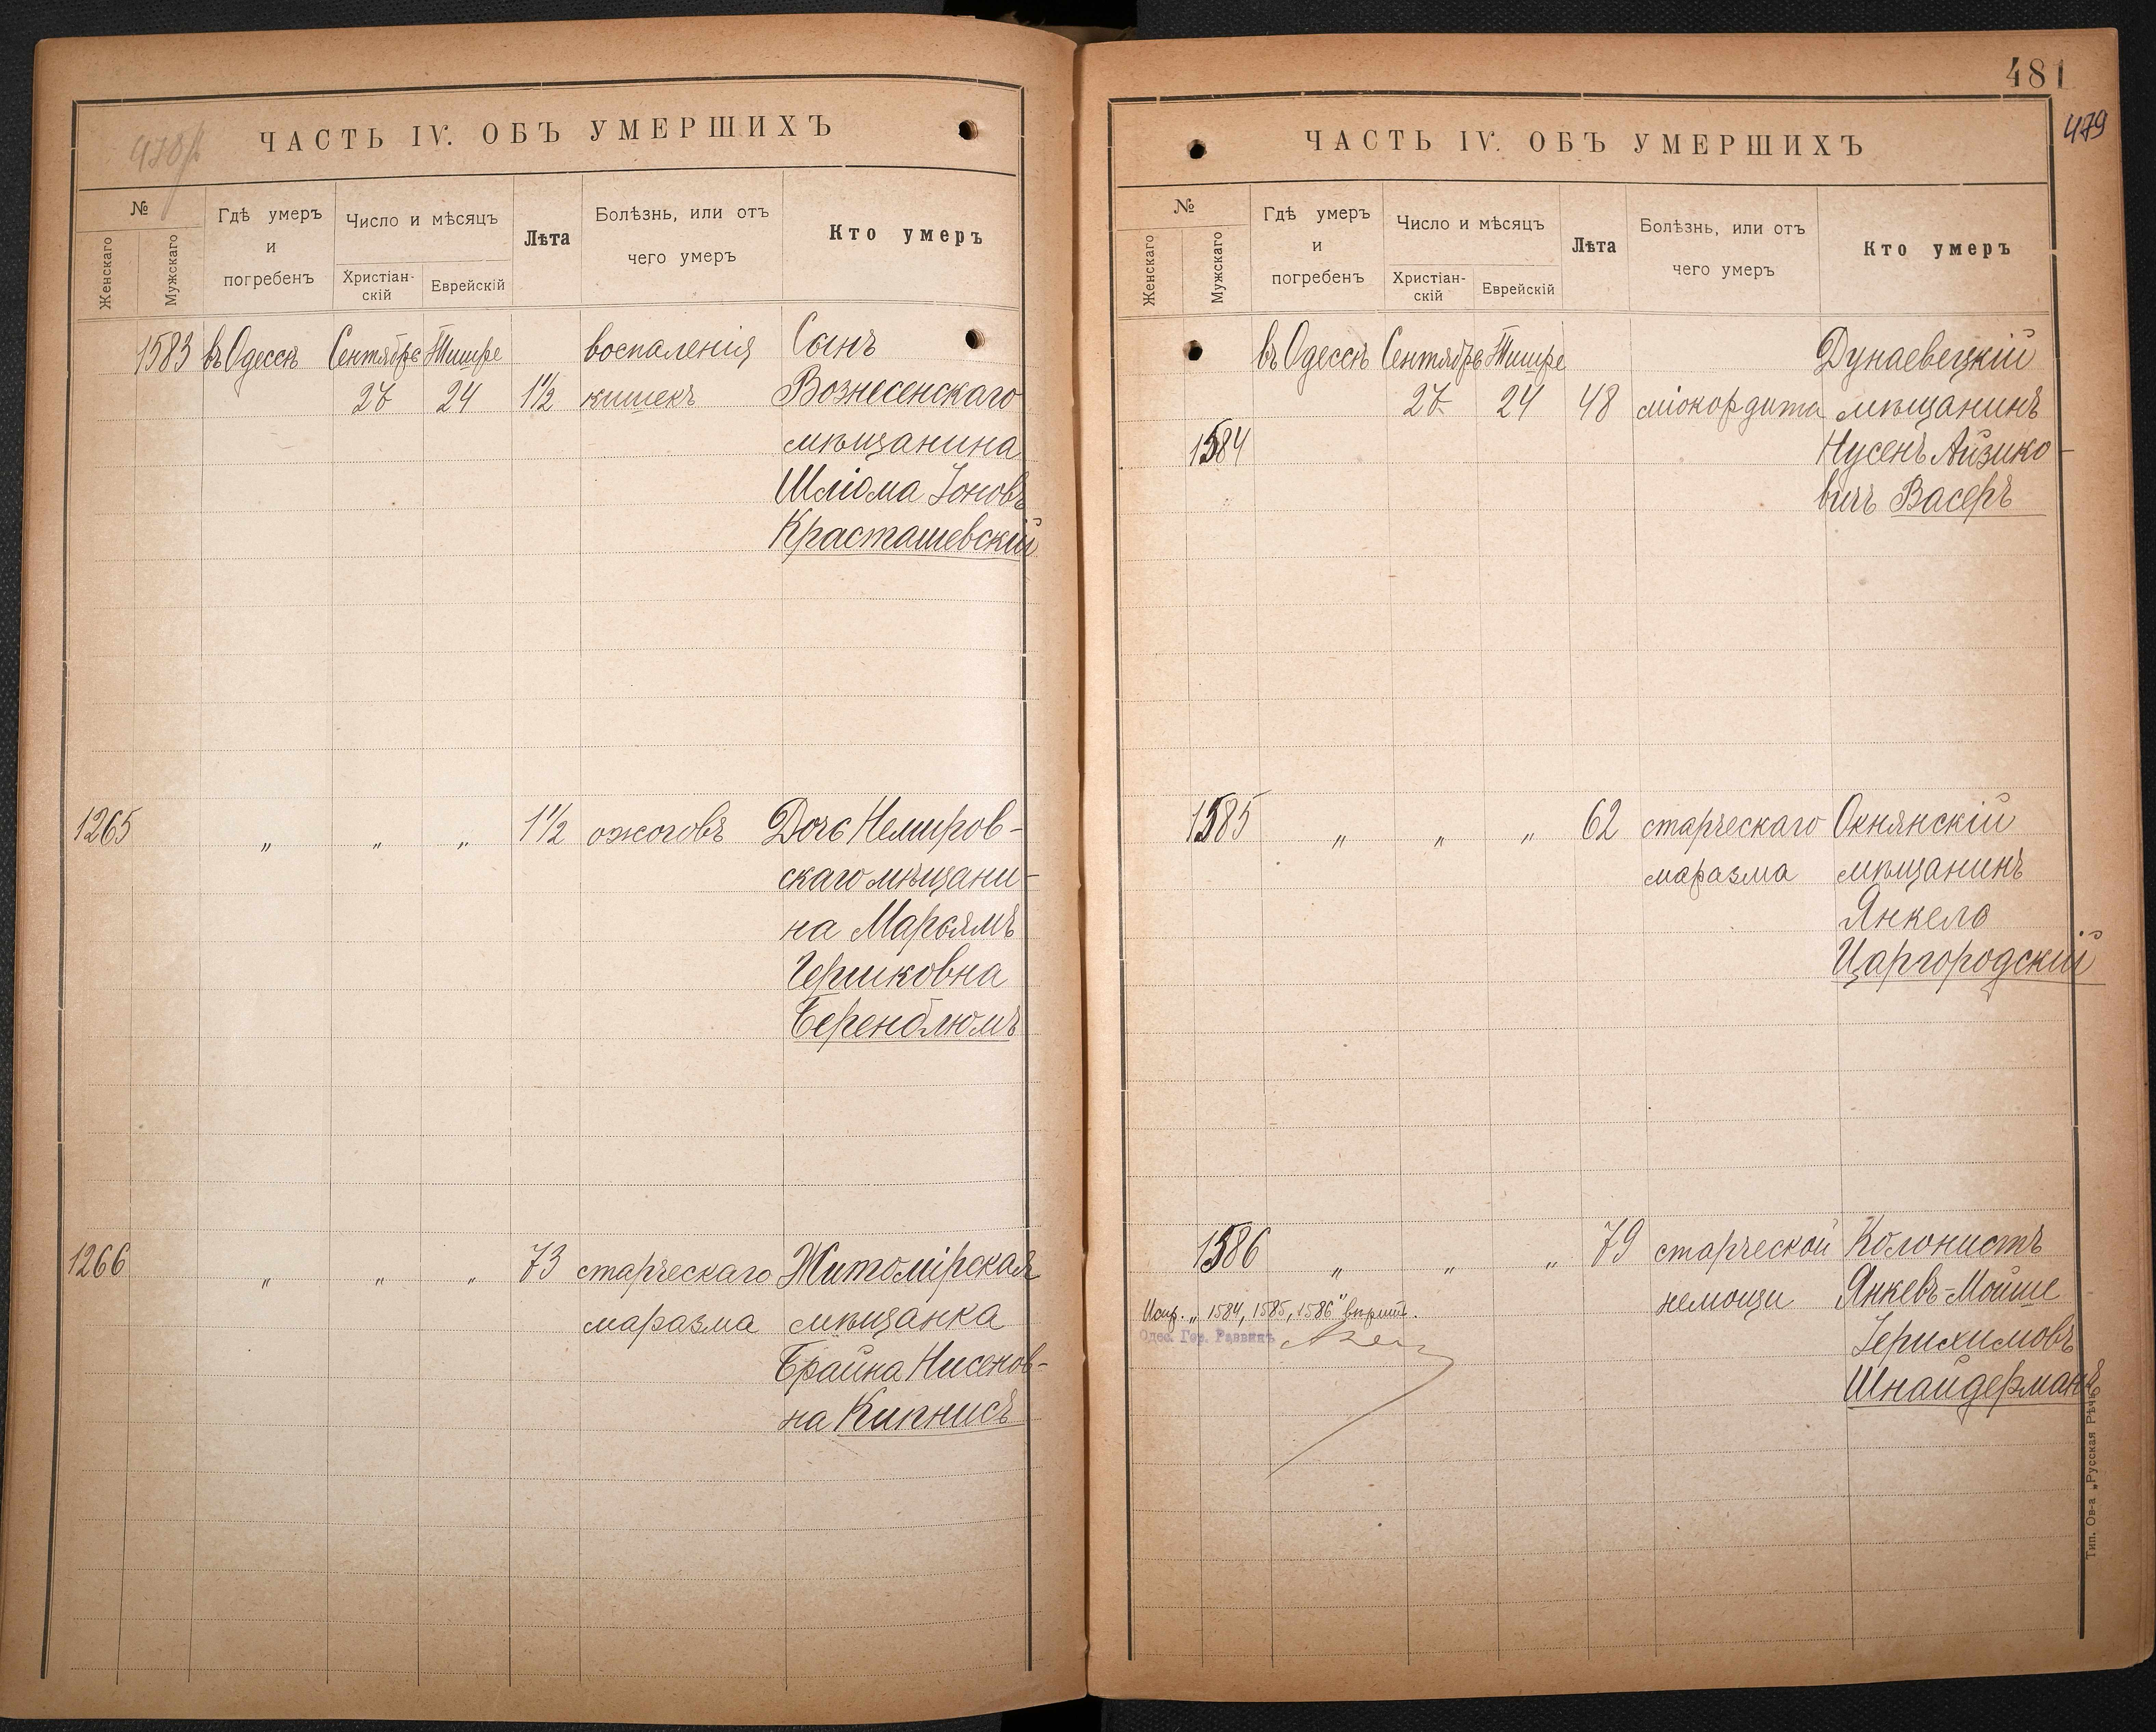 ЧАСТЬ IV. ОБЪ УМЕРШИХЪ
№
Женскаго
Мужскаго
Гдѣ умеръ
и
погребенъ
Число и мѣсяцъ
Христіан-
скій
Еврейскій
Лѣта
Болѣзнь, или отъ
чего умеръ
Кто умеръ
1583 въ Одессѣ Сентябрь Тишре воспаленія Сынъ
27 24 1½ кишекъ Вознесенскаго
мѣщанина
Шліома Іоновъ
Красташевскій
1265 „ „ „ 1½ ожоговъ Дочь Немиров-
скаго мѣщани-
на Марьямъ
Гершковна
Беренблюмъ
1266 „ „ „ 73 старческаго Житомірская
маразма мѣщанка
Брайна Нисенов-
на Кипнисъ
481
479
ЧАСТЬ IV. ОБЪ УМЕРШИХЪ
№
Женскаго
Мужскаго
Гдѣ умеръ
и
погребенъ
Число и мѣсяцъ
Христіан-
скій
Еврейскій
Лѣта
Болѣзнь, или отъ
чего умеръ
Кто умеръ
въ Одессѣ Сентябрь Тишре Дунаевецкій
27 24 48 міокордита мѣщанинъ
1584 Нусенъ Айзико-
вичъ Васеръ
1585 „ „ „ 62 старческаго Окнянскій
маразма мѣщанинъ
Янкель
Царгородскій
1586 „ „ „ 79 старческой Колонистъ
немощи Янкевъ-Мойше
Іерихимовъ
Шнайдерманъ
Испр. „1584, 1585, 1586“ вѣрить.
Одес. Гор. Раввинъ
Тип. Ов-а „Русская Рѣчь